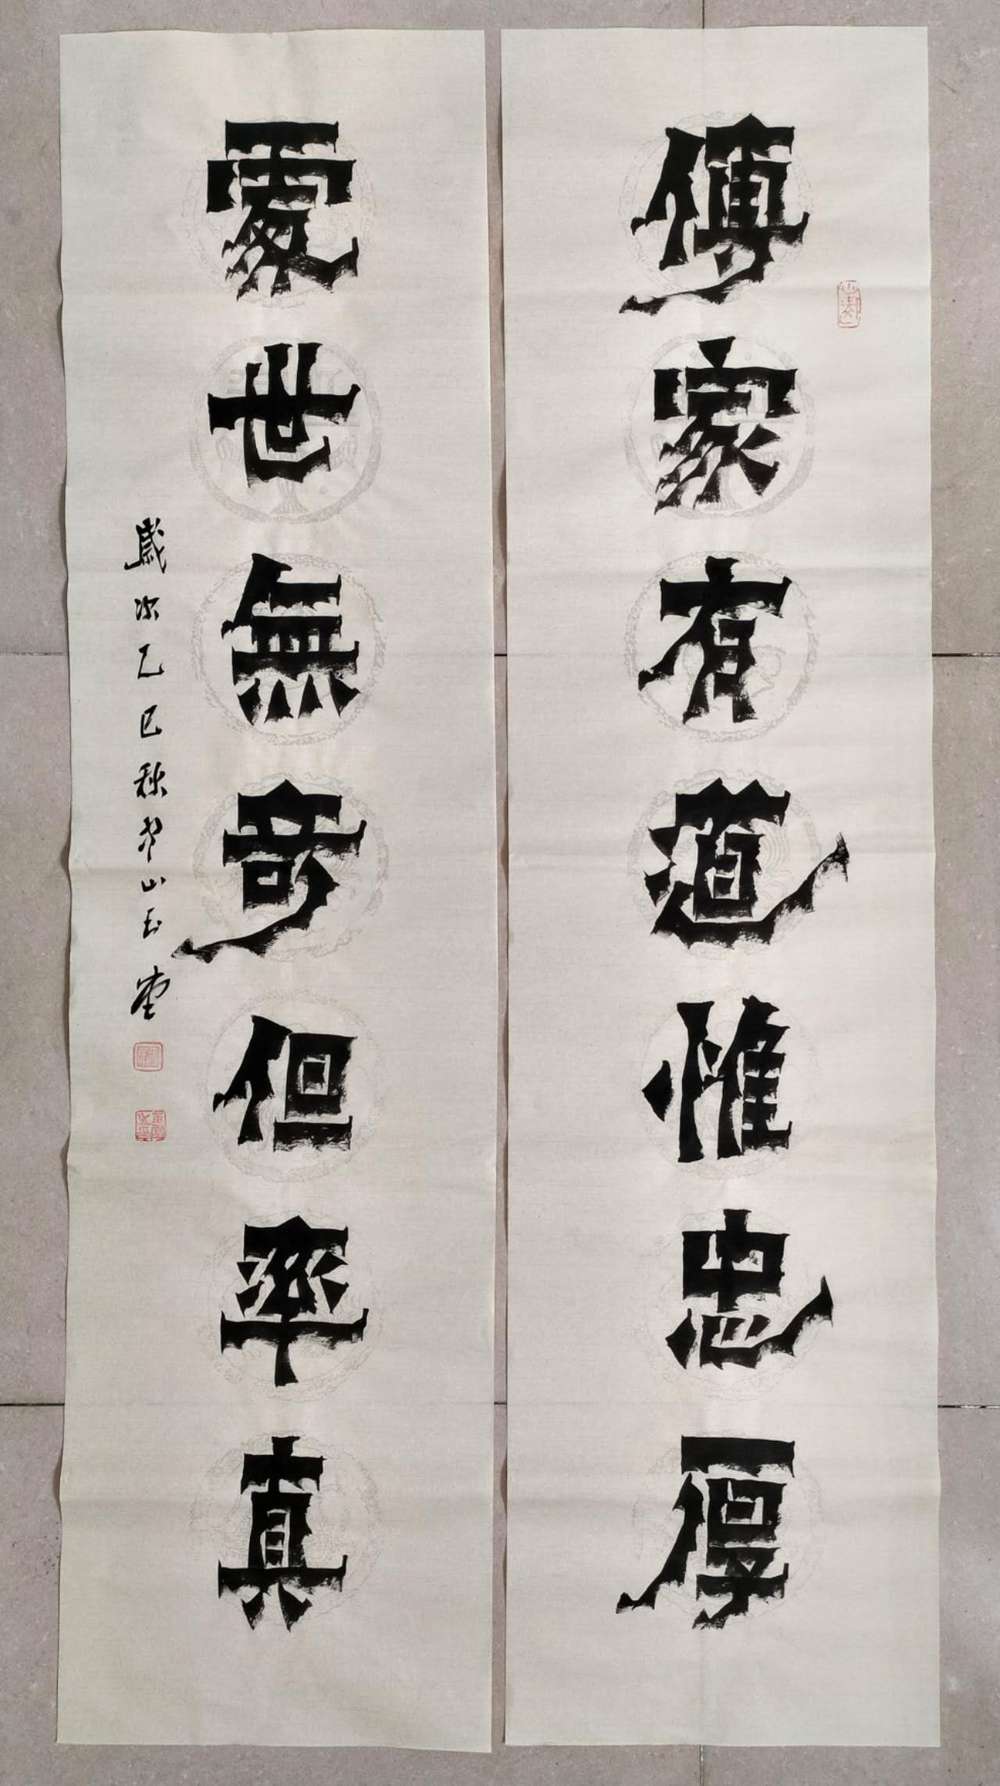 傳家有道惟忠厚
處世無奇但率真
歲次乙巳秋山玉堂